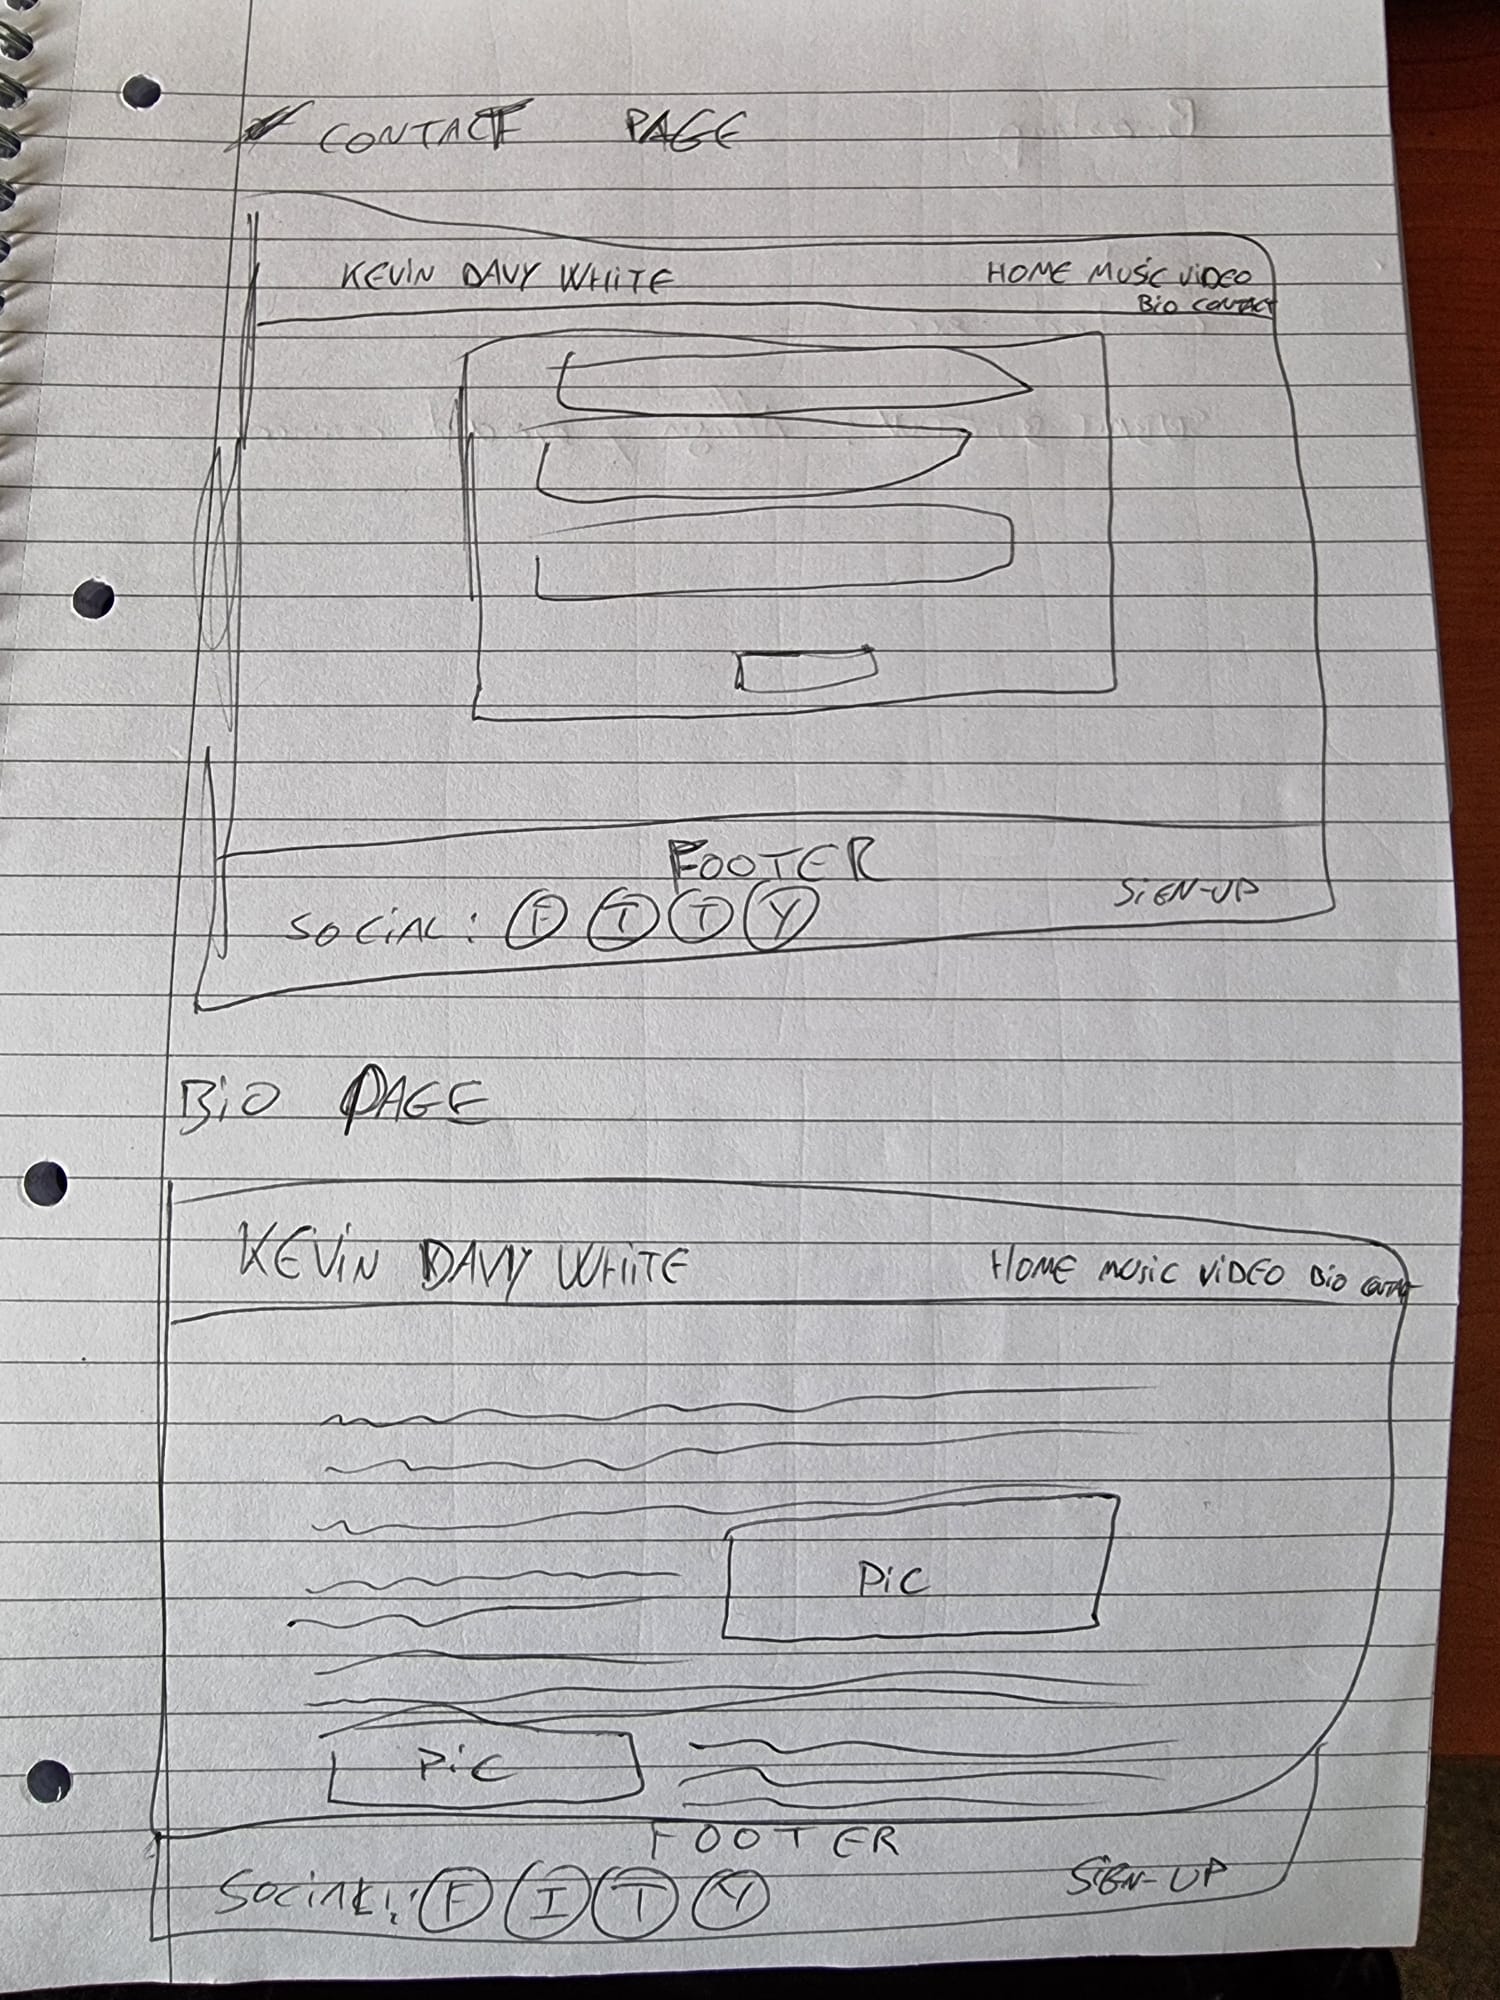 CONTACT PAGE
KEVIN DAVY WHITE HOME MUSIC VIDEO
BIO CONTACT
FOOTER
SOCIAL: F I T Y
SIGN-UP
BIO PAGE
KEVIN DAVY WHITE HOME MUSIC VIDEO BIO CONTACT
PIC
PIC
FOOTER
SOCIAL: F I T Y
SIGN-UP